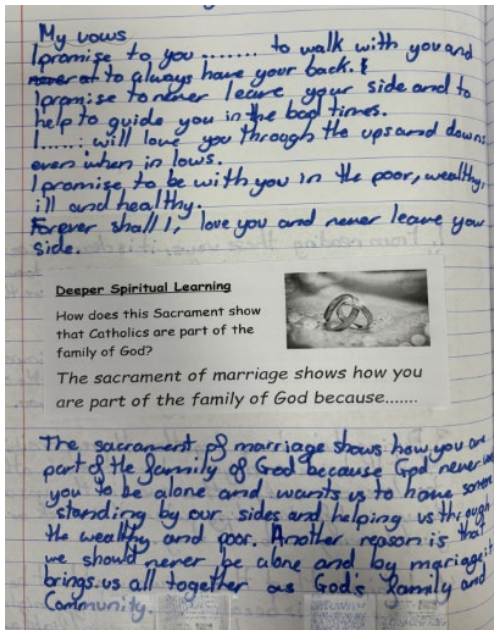 My vows
I promise to you ........ to walk with you and
to always have your back. &
I promise to never leave your side and to
help to guide you in the bad times.
I......: will love you through the ups and downs
even when in lows.
I promise to be with you in the poor, wealthy,
ill and healthy.
Forever shall I, love you and never leave your
side.
Deeper Spiritual Learning
How does this Sacrament show
that Catholics are part of the
family of God?
The sacrament of marriage shows how you
are part of the family of God because.......
The sacrament of marriage shows how you are
part of the family of God because God never
you to be alone and wants us to have
standing by our sides and helping us through
the wealthy and poor. Another reason is that
we should never be alone and by mariage it
brings us all together as God's family and
Community.